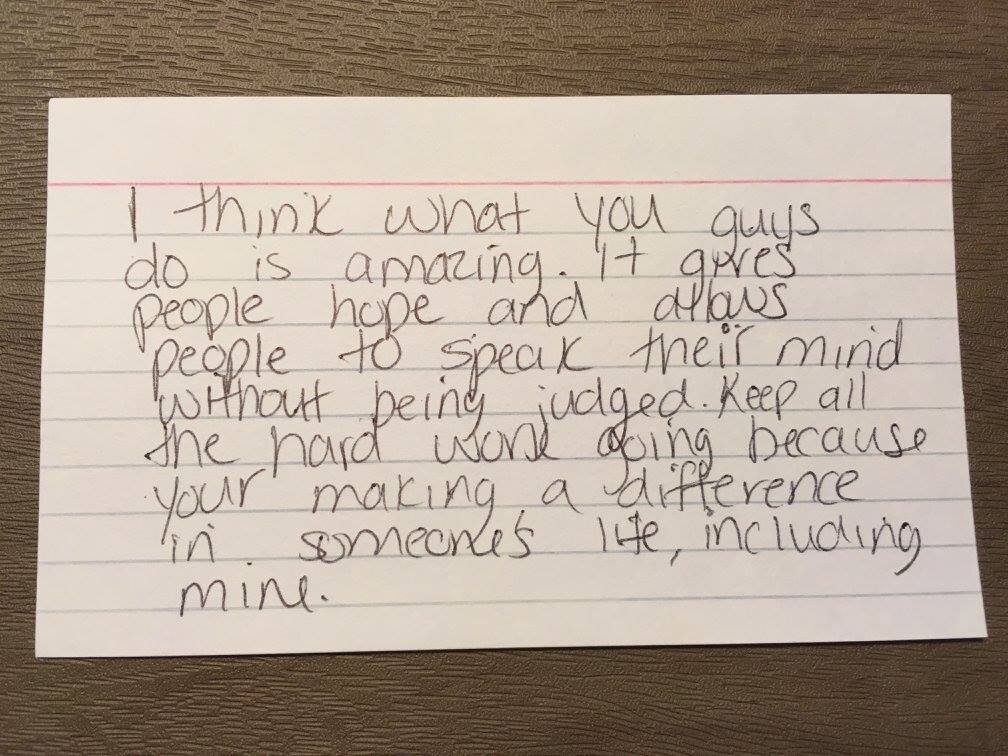 I think what you guys
do is amazing. It gives
people hope and allows
people to speak their mind
without being judged. Keep all
the hard work going because
your making a difference
in someone's life, including
mine.